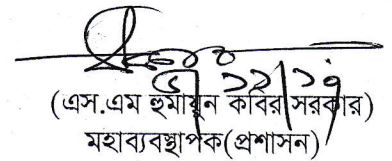 (এস.এম হুমায়ুন কবির সরকার)
মহাব্যবস্থাপক(প্রশাসন)